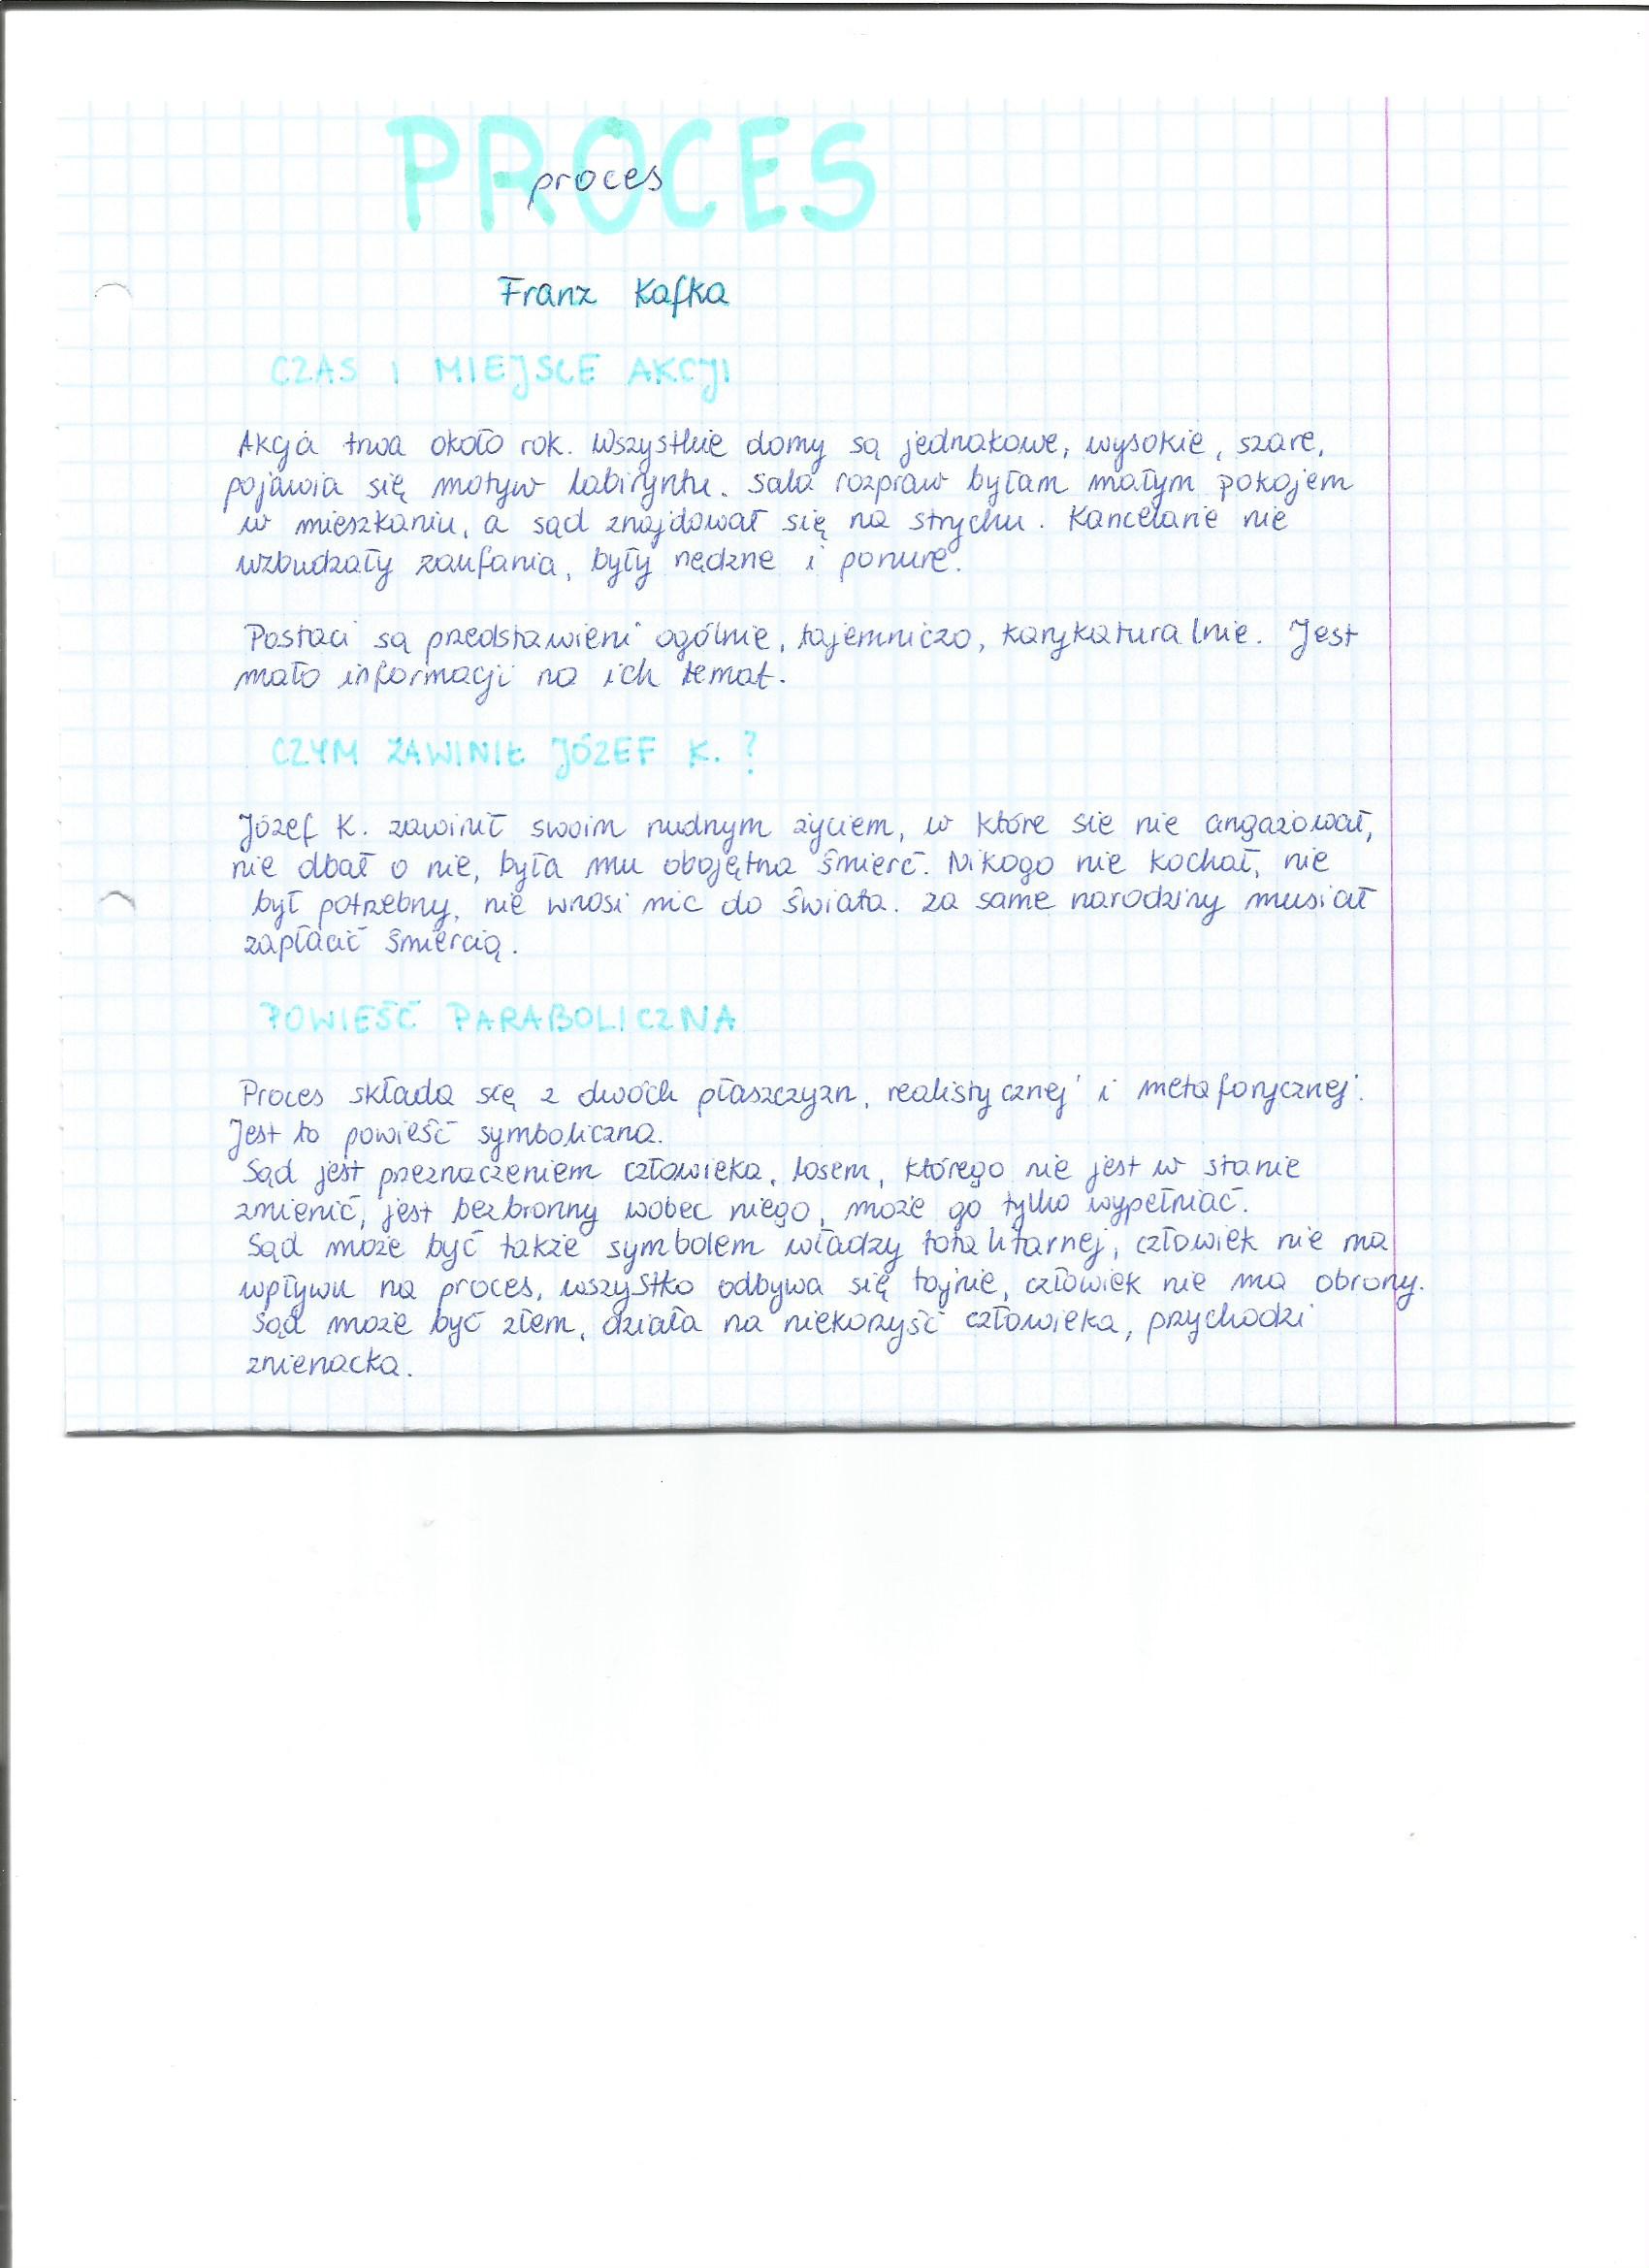 PROCES
proces
Franz Kafka
CZAS I MIEJSCE AKCJI
Akcja trwa około rok. Wszystkie domy są jednakowe, wysokie, szare,
pojawia się motyw labiryntu. Sala rozpraw byłam małym pokojem
w mieszkaniu, a sąd znajdował się na strychu. Kancelarie nie
wzbudzały zaufania, były nędzne i ponure.
Postaci są przedstawieni ogólnie, tajemniczo, karykaturalnie. Jest
mało informacji na ich temat.
CZYM ZAWINIŁ JÓZEF K. ?
Józef K. zawinił swoim nudnym życiem, w które sie nie angażował,
nie dbał o nie, była mu obojętna śmierć. Nikogo nie kochał, nie
był potrzebny, nie wnosi nic do świata. Za same narodziny musiał
zapłacić śmiercią.
POWIEŚĆ PARABOLICZNA
Proces składa się z dwóch płaszczyzn, realistycznej i metaforycznej.
Jest to powieść symboliczna.
Sąd jest przeznaczeniem człowieka, losem, którego nie jest w stanie
zmienić, jest bezbronny wobec niego, może go tylko wypełniać.
Sąd może być także symbolem władzy totalitarnej, człowiek nie ma
wpływu na proces, wszystko odbywa się tajnie, człowiek nie ma obrony.
Sąd może być złem, działa na niekorzyść człowieka, przychodzi
znienacka.